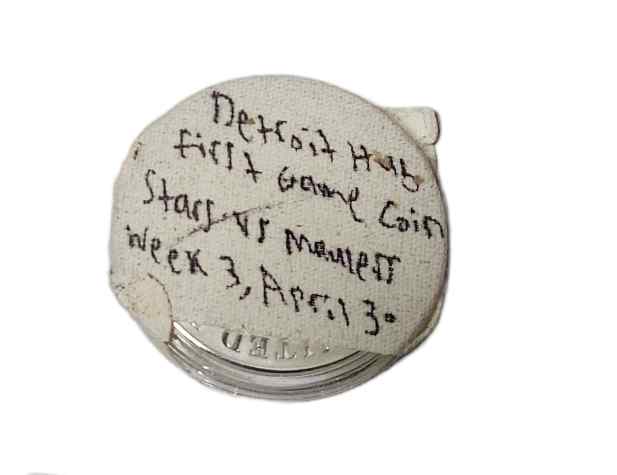 Detroit Hub
First Game Coin
Stars vs Maulers
Week 3, April 30
UNITED